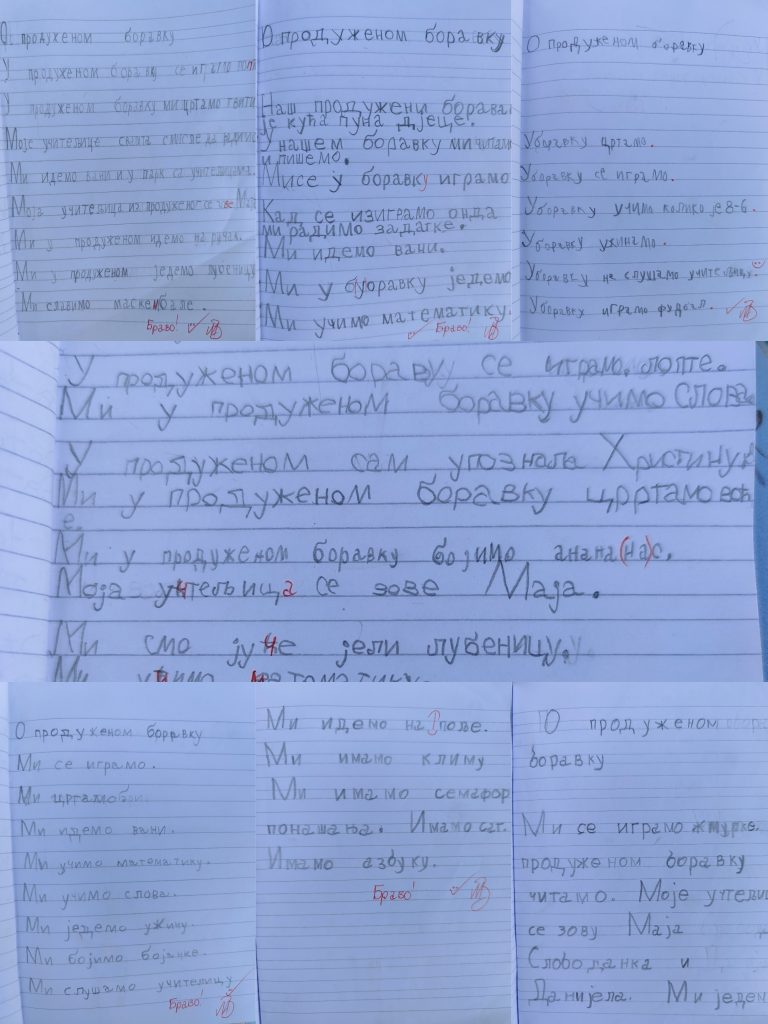 О продуженом боравку
У продуженом боравку се играмо
У продуженом боравку ми цртамо
Моје учитељице
Ми идемо вани и у парк са учитељицама.
Моја учитељица из продуженог се зове Маја
Ми у продуженом идемо на ручак.
Ми у продуженом једемо лубеницу
Ми славимо маскенбале.
Браво!
О продуженом боравку
Наш продужени борава
је кућа пуна дјеце.
У нашем боравку ми читам
и пишемо.
Ми се у боравку играмо
Кад се изиграмо онда
ми радимо задатке.
Ми идемо вани.
Ми у буоравку једемо
Ми учимо математику.
Браво!
О продуженом боравку
У боравку цртамо.
У боравку се играмо.
У боравку учимо колико је 8-6.
У боравку ужинамо.
У боравку на слушамо учитељицу.
У боравку играмо фудбал.
У продуженом бораву се играмо, лопте.
Ми у продуженом боравку учимо Слова.
У продуженом сам упознала Христину
Ми у продуженом боравку црртамо
е.
Ми у продуженом боравку бојимо анана(на)с.
Моја учитељица се зове Маја.
Ми смо јуче јели лубеницу.
Ми учимо математику.
О продуженом боравку
Ми се играмо.
Ми цртамо
Ми идемо вани.
Ми учимо математику.
Ми учимо слова.
Ми једемо ужину.
Ми бојимо бојанке.
Ми слушамо учителицу
Браво!
Ми идемо на поље.
Ми имамо климу
Ми имамо семафор
понашања. Имамо сат.
Имамо азбуку.
Браво!
О продуженом
боравку
Ми се играмо жмурке.
продуженом боравку
читамо. Моје учтељи
се зову Маја
Слободанка и
Данијела. Ми једем